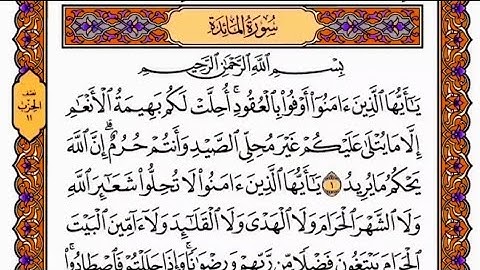 سُورَةُ المَائدَة
نصف
الحزب
١١
بِسْمِ ٱللَّهِ ٱلرَّحْمَٰنِ ٱلرَّحِيمِ
يَٰٓأَيُّهَا ٱلَّذِينَ ءَامَنُوٓا۟ أَوْفُوا۟ بِٱلْعُقُودِۚ أُحِلَّتْ لَكُم بَهِيمَةُ ٱلْأَنْعَٰمِ
إِلَّا مَا يُتْلَىٰ عَلَيْكُمْ غَيْرَ مُحِلِّى ٱلصَّيْدِ وَأَنتُمْ حُرُمٌۗ إِنَّ ٱللَّهَ
يَحْكُمُ مَا يُرِيدُ ١ يَٰٓأَيُّهَا ٱلَّذِينَ ءَامَنُوا۟ لَا تُحِلُّوا۟ شَعَٰٓئِرَ ٱللَّهِ
وَلَا ٱلشَّهْرَ ٱلْحَرَامَ وَلَا ٱلْهَدْىَ وَلَا ٱلْقَلَٰٓئِدَ وَلَآ ءَآمِّينَ ٱلْبَيْتَ
ٱلْحَرَامَ يَبْتَغُونَ فَضْلًا مِّن رَّبِّهِمْ وَرِضْوَٰنًاۚ وَإِذَا حَلَلْتُمْ فَٱصْطَادُوا۟ۚ